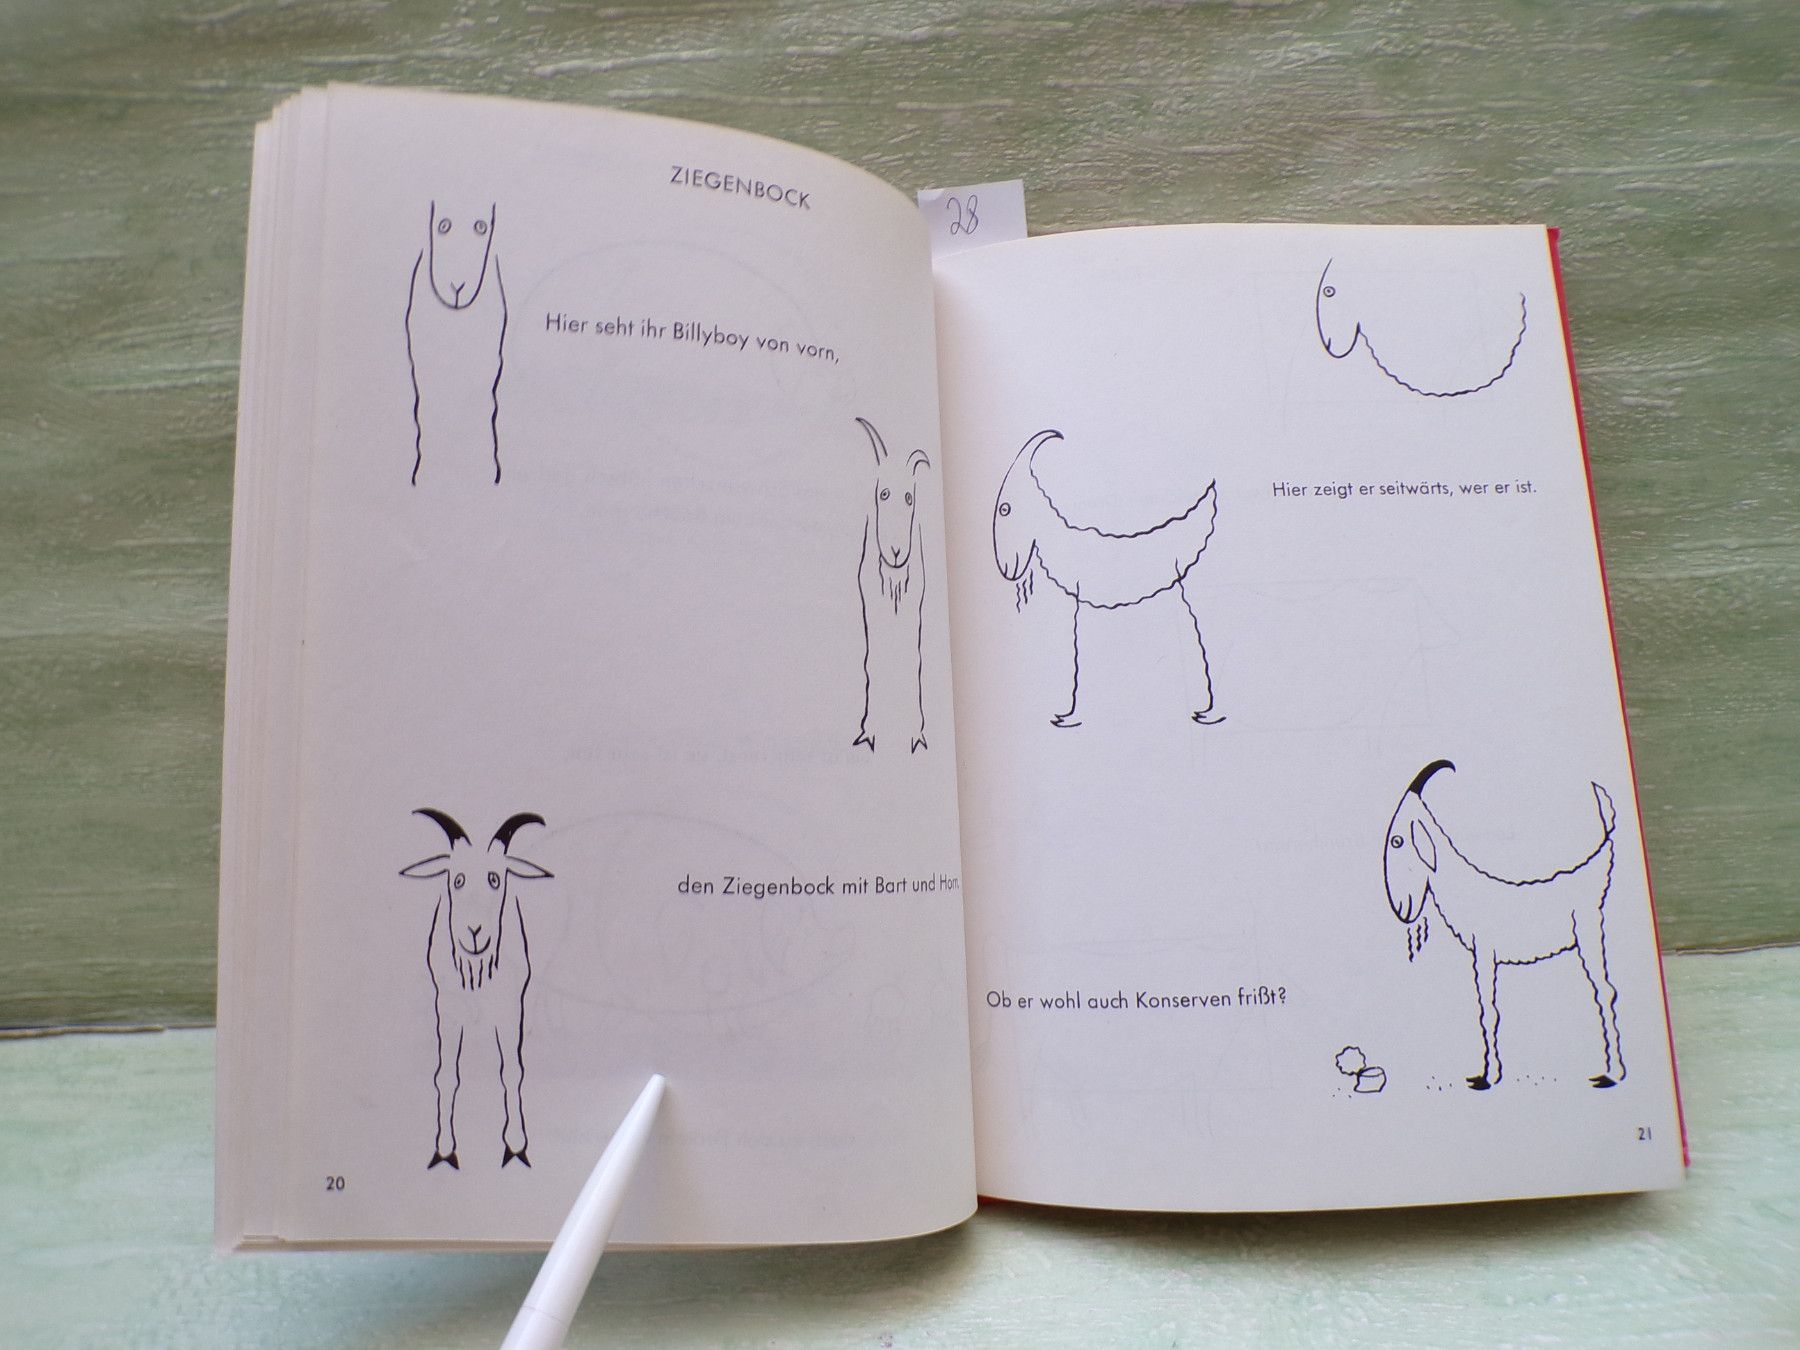 ZIEGENBOCK
Hier seht ihr Billyboy von vorn,
den Ziegenbock mit Bart und Horn.
20
28
Hier zeigt er seitwärts, wer er ist.
Ob er wohl auch Konserven frißt?
21